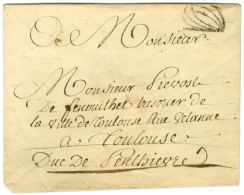 De Monsieur
Monsieur Prevost
De fenouillet tresorier de
la ville de toulouse Rue Velanne
a Toulouse
Duc De Penthievre